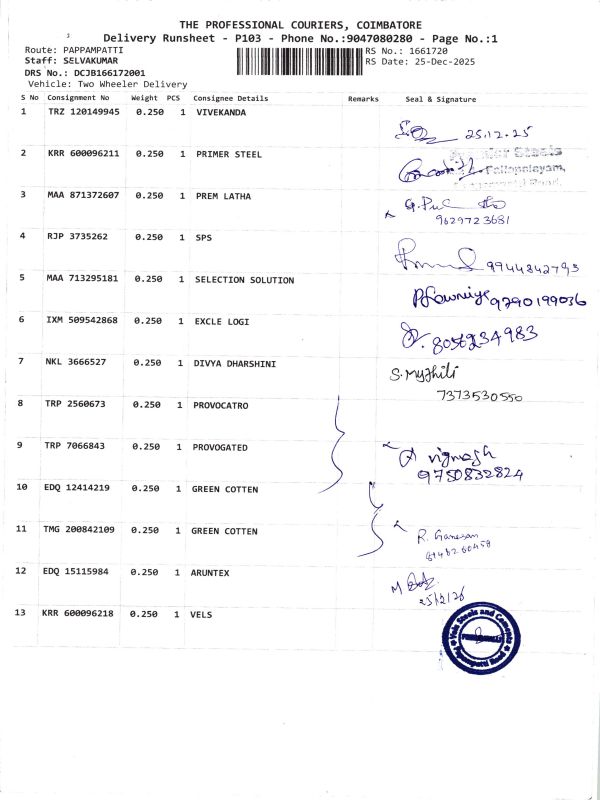 THE PROFESSIONAL COURIERS, COIMBATORE
Delivery Runsheet - P103 - Phone No.:9047080280 - Page No.:1
Route: PAPPAMPATTI
RS No.: 1661720
Staff: SELVAKUMAR
RS Date: 25-Dec-2025
DRS No.: DCJB166172001
Vehicle: Two Wheeler Delivery
S No Consignment No Weight PCS Consignee Details Remarks Seal & Signature
1 TRZ 120149945 0.250 1 VIVEKANDA
25.12.25
2 KRR 600096211 0.250 1 PRIMER STEEL
Steels
3 MAA 871372607 0.250 1 PREM LATHA
9629723681
4 RJP 3735262 0.250 1 SPS
9944842793
5 MAA 713295181 0.250 1 SELECTION SOLUTION
9790199036
6 IXM 509542868 0.250 1 EXCLE LOGI
8056234983
7 NKL 3666527 0.250 1 DIVYA DHARSHINI
S. Mythili
7373530550
8 TRP 2560673 0.250 1 PROVOCATRO
9 TRP 7066843 0.250 1 PROVOGATED
vignesh
9750832824
10 EDQ 12414219 0.250 1 GREEN COTTEN
11 TMG 200842109 0.250 1 GREEN COTTEN
R. Ganesan
12 EDQ 15115984 0.250 1 ARUNTEX
13 KRR 600096218 0.250 1 VELS
Vels Steels and Cements
Pappampatti Road